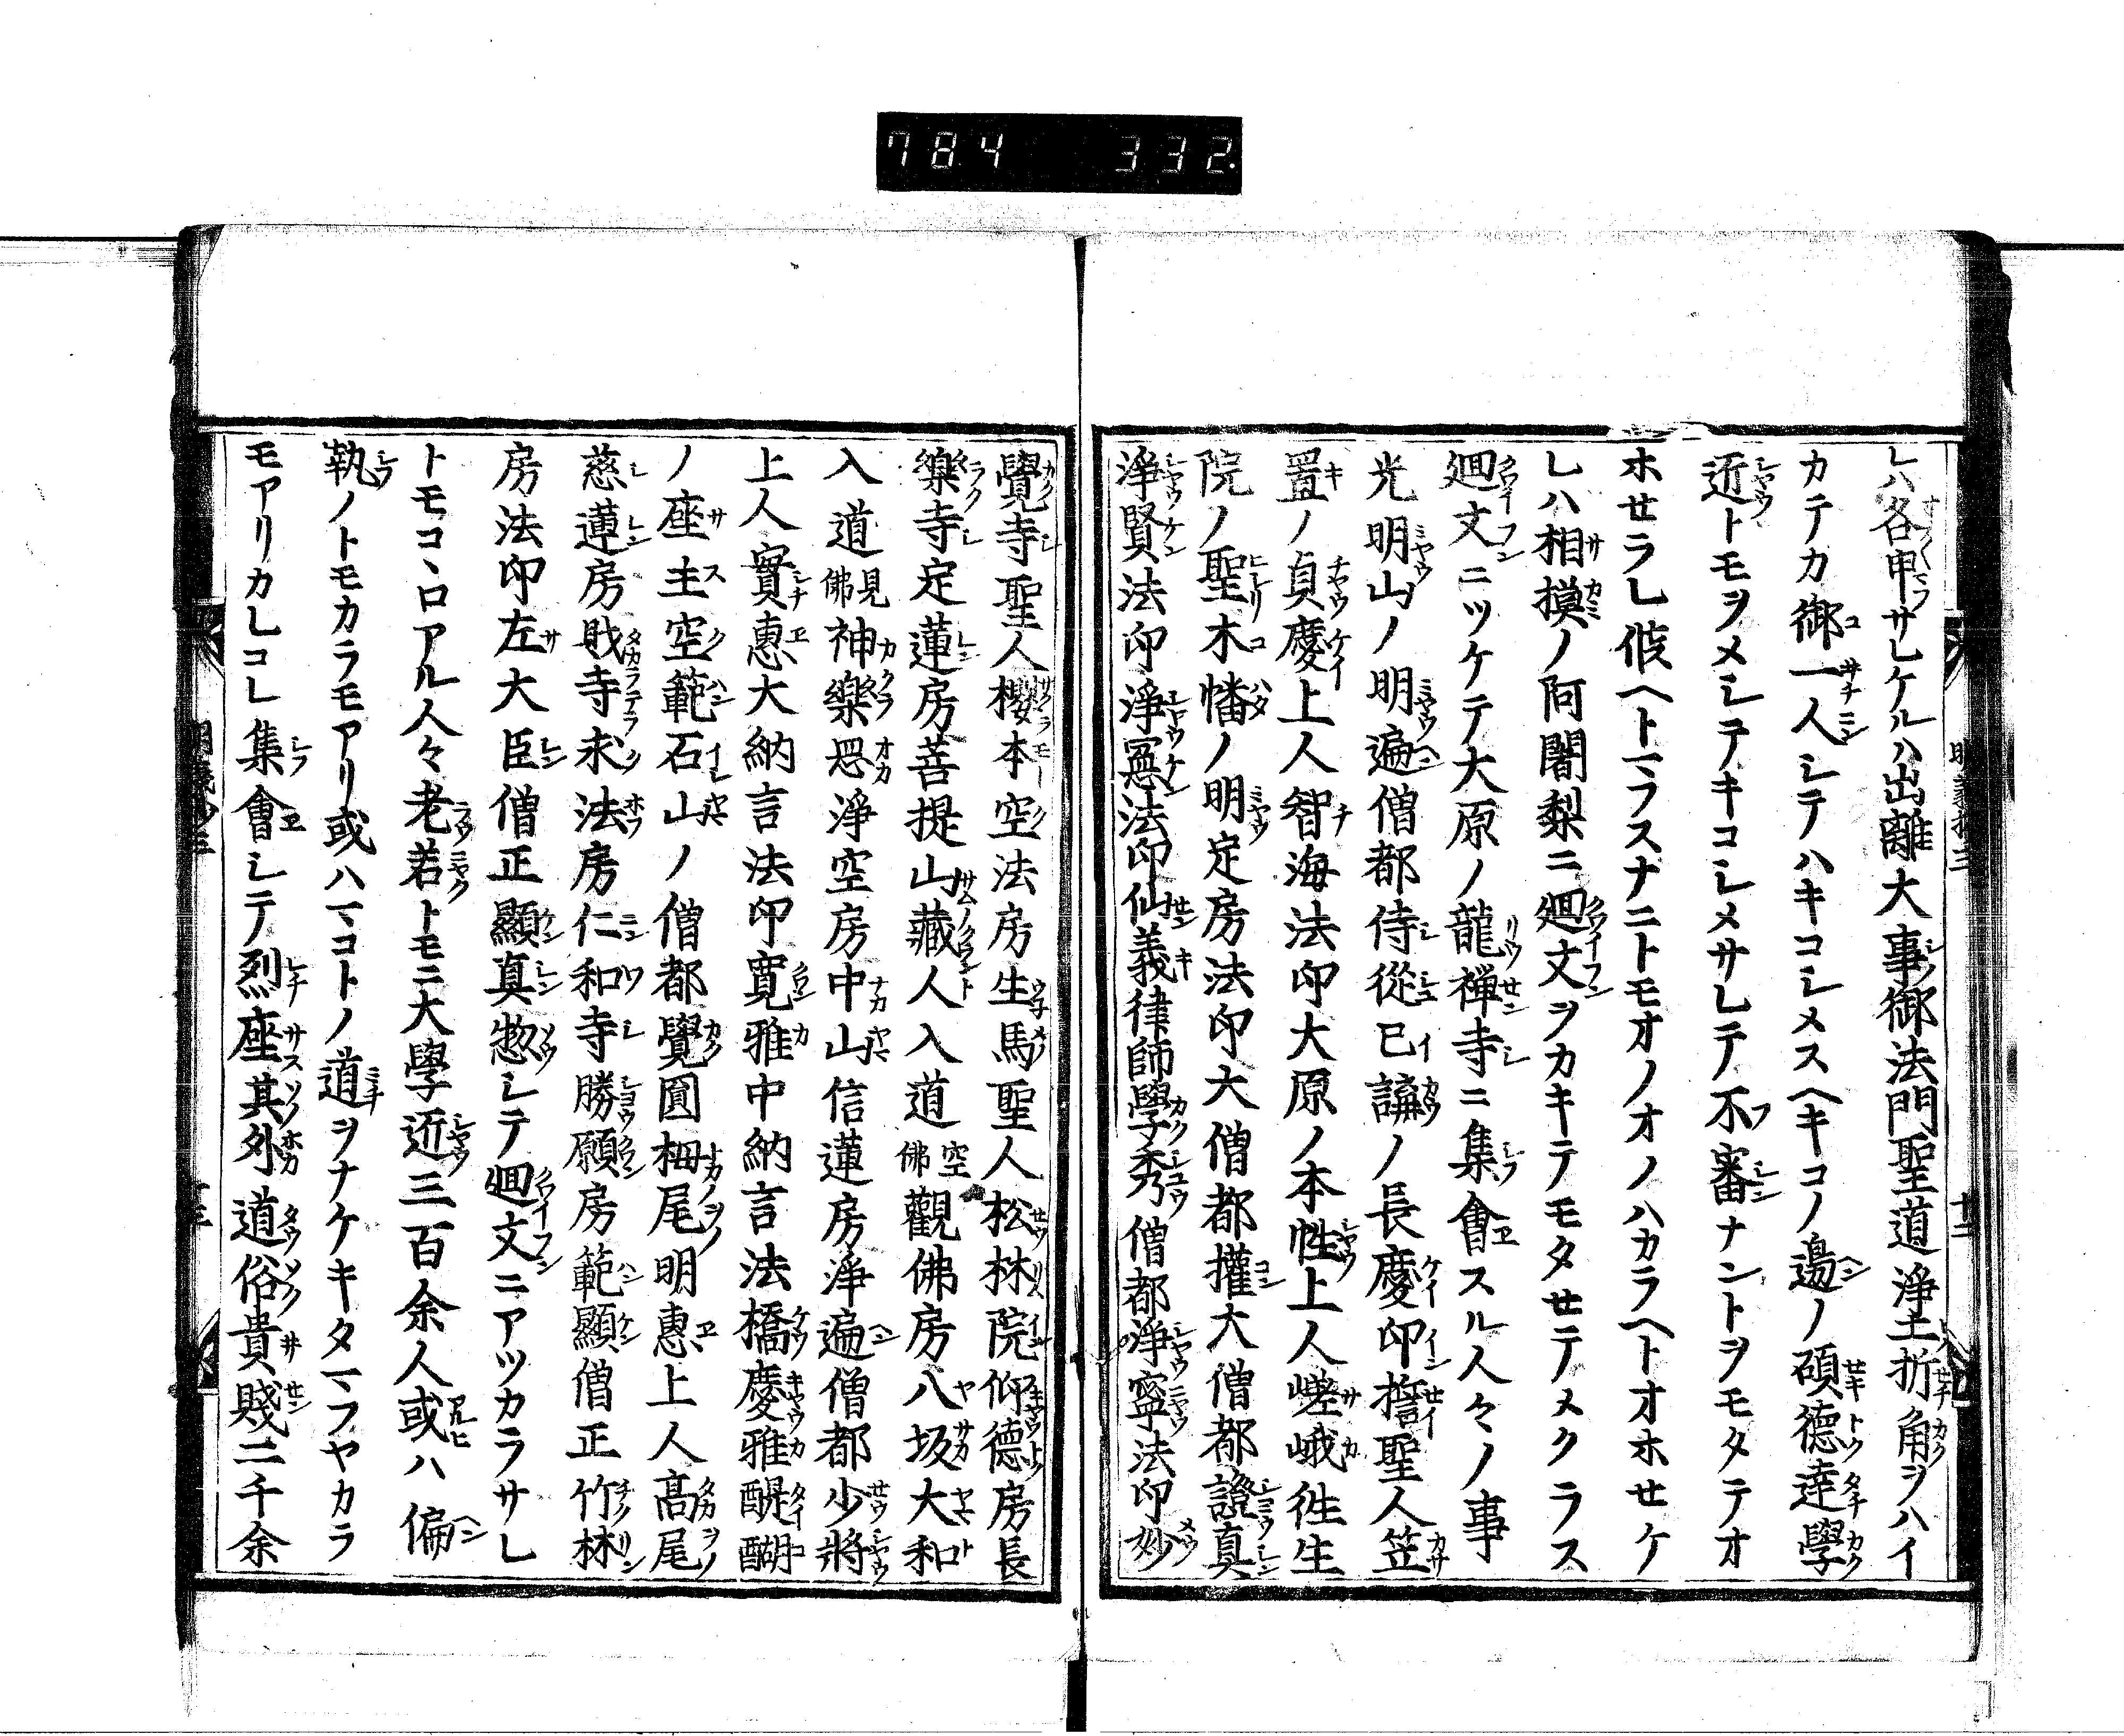 784 332
レハ各申サレケルハ出離大事御法門聖道浄土折角ヲハイ
カテカ御一人シテハキコシメスヘキコノ邊ノ碩德達學
近トモヲメシテキコシメサレテ不審ナントヲモタテオ
ホセラレ候ヘトマフスナニトモオノオノハカラヘトオホセケ
レハ相摸ノ阿闍梨ニ廻文ヲカキテモタセテメクラス
廻文ニツケテ大原ノ龍禅寺ニ集會スル人々ノ事
光明山ノ明遍僧都侍從已講ノ長慶印誓聖人笠
置ノ貞慶上人智海法印大原ノ本性上人嵯峨徃生
院ノ聖木幡ノ明定房法印大僧都權大僧都證真
浄賢法印浄憲法印仙義律師學秀僧都浄寧法印妙
覺寺聖人櫻本空法房生馬聖人松林院仰德房長
樂寺定蓮房菩提山藏人入道空佛觀佛房八坂大和
入道見佛神樂恩淨空房中山信蓮房淨遍僧都少將
上人實惠大納言法印寬雅中納言法橋慶雅醍醐
ノ座主空範石山ノ僧都覺圓栂尾明惠上人髙尾
慈蓮房財寺求法房仁和寺勝願房範顯僧正竹林
房法印左大臣僧正顯真惣シテ廻文ニアツカラサレ
トモコヽロアル人々老若トモニ大學近三百余人或ハ偏
執ノトモカラモアリ或ハマコトノ道ヲナケキタマフヤカラ
モアリカレコレ集會シテ烈座其外道俗貴賤二千余